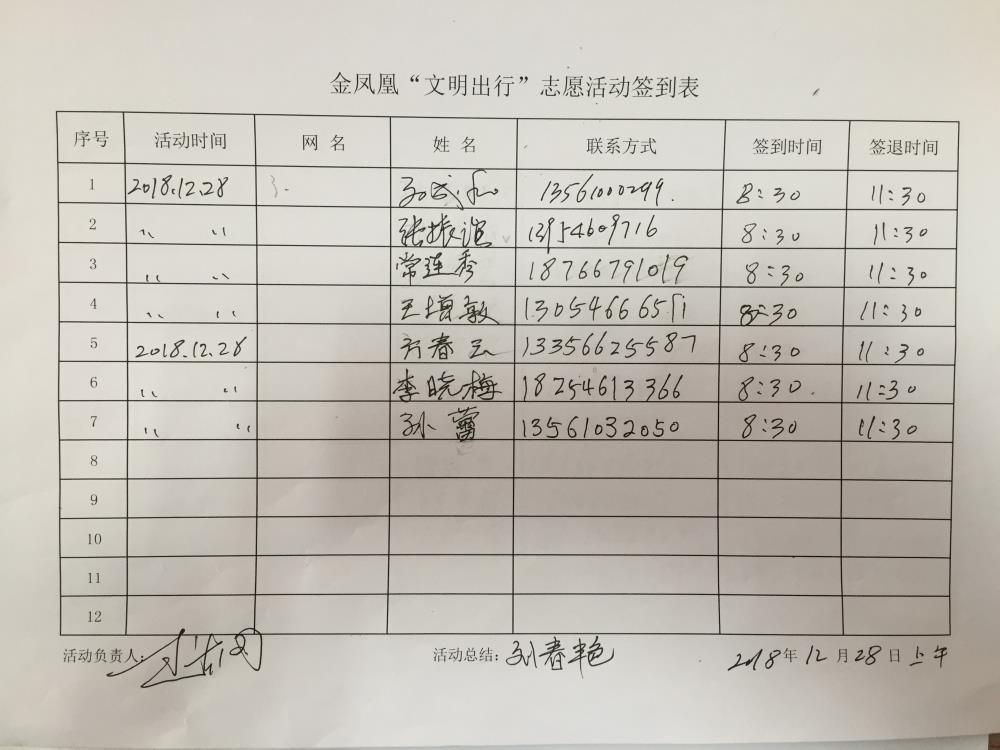 金凤凰“文明出行”志愿活动签到表
序号 活动时间 网名 姓名 联系方式 签到时间 签退时间
1 2018.12.28 13561000299. 8:30 11:30
2 〃 〃 张振谊 13954609716 8:30 11:30
3 〃 〃 常连秀 18766791019 8:30 11:30
4 〃 〃 王增敏 8:30 11:30
5 2018.12.28 春云 13356625587 8:30 11:30
6 〃 〃 李晓梅 18254613366 8:30 11:30
7 〃 〃 孙蕾 13561032050 8:30 11:30
8
9
10
11
12
活动负责人: 活动总结: 刘春艳 2018年12月28日上午